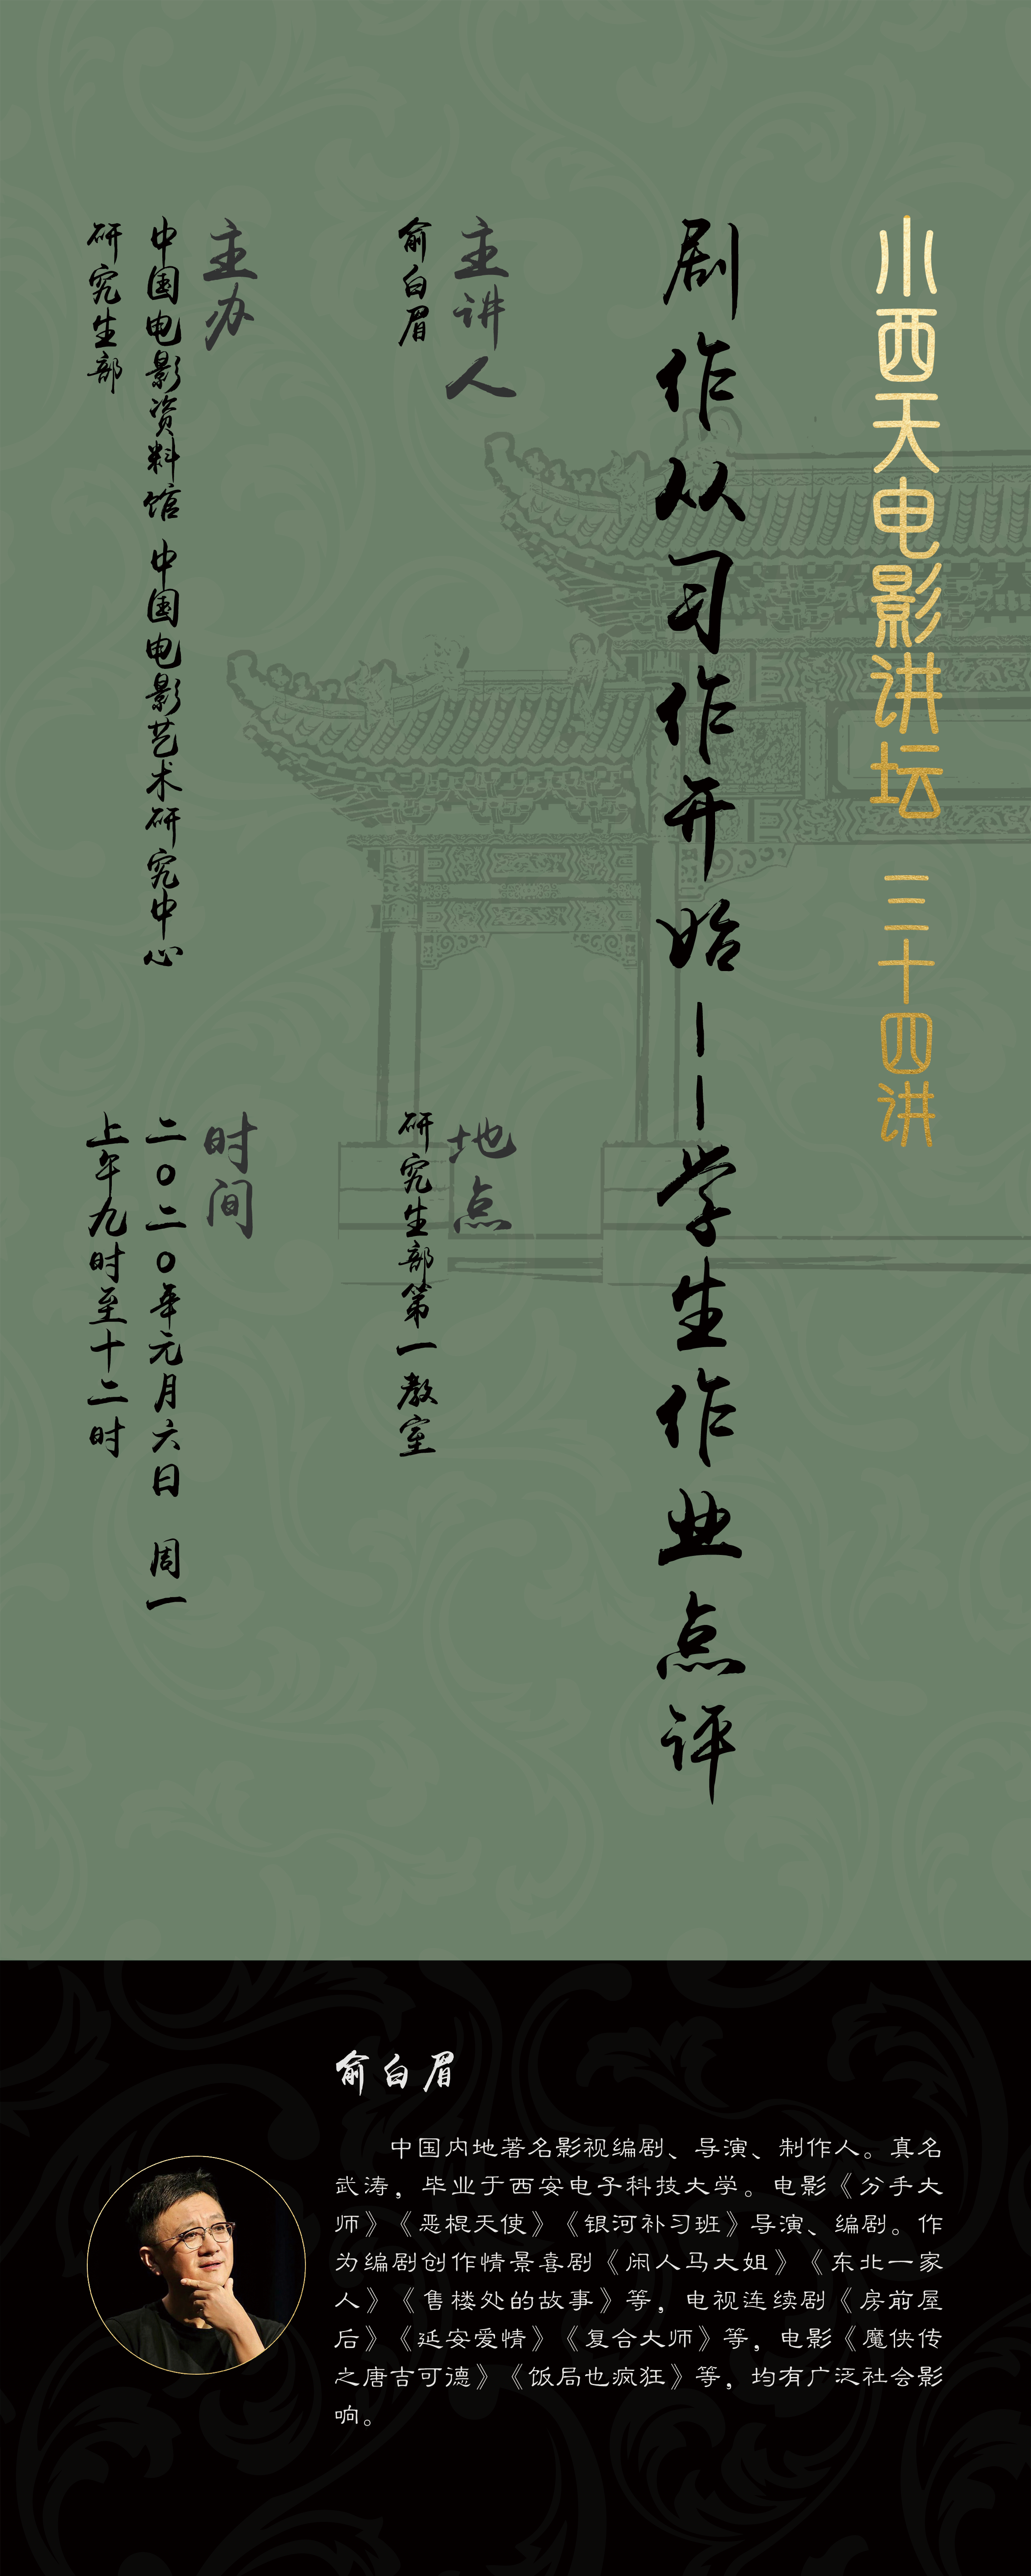 小西天电影讲坛 三十四讲
剧作从习作开始——学生作业点评
主讲人
俞白眉
地点
研究生部第一教室
主办
中国电影资料馆 中国电影艺术研究中心
研究生部
时间
二〇二〇年元月六日 周一
上午九时至十二时
俞白眉
中国内地著名影视编剧、导演、制作人。真名
武涛，毕业于西安电子科技大学。电影《分手大
师》《恶棍天使》《银河补习班》导演、编剧。作
为编剧创作情景喜剧《闲人马大姐》《东北一家
人》《售楼处的故事》等，电视连续剧《房前屋
后》《延安爱情》《复合大师》等，电影《魔侠传
之唐吉可德》《饭局也疯狂》等，均有广泛社会影
响。